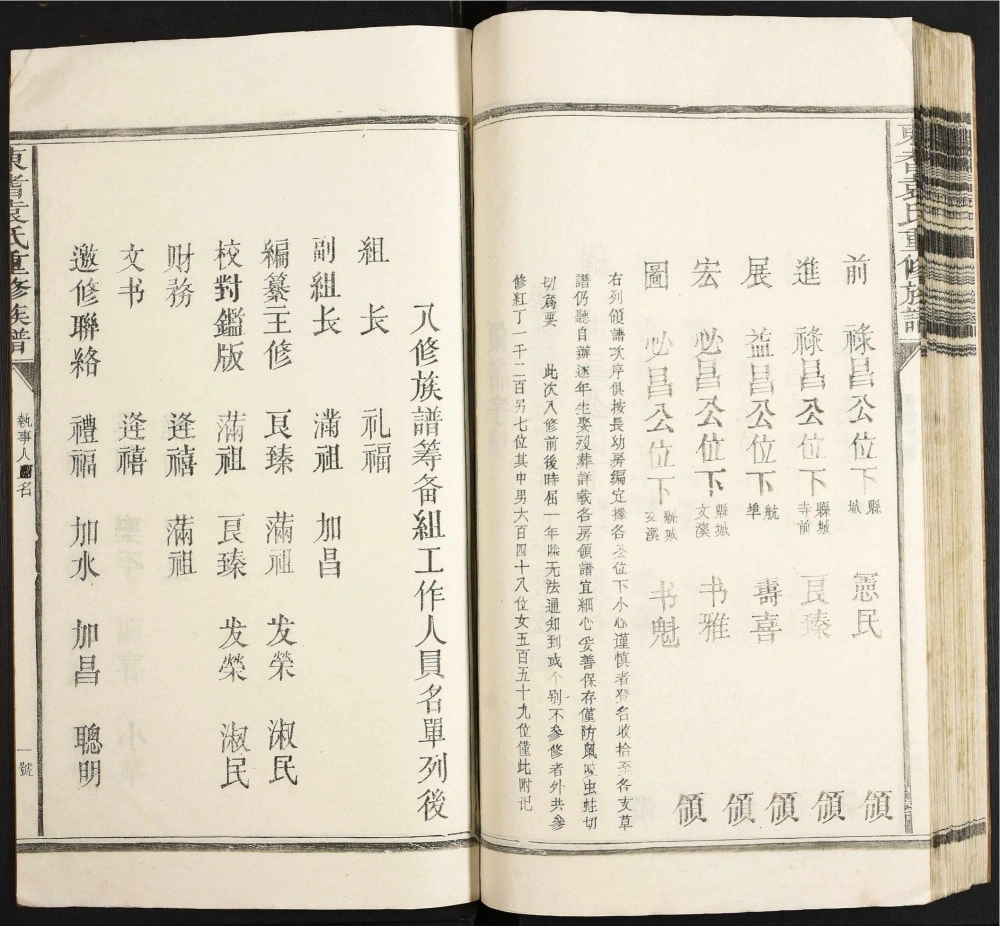 前 祿昌公位下 縣城 憲民 領
進 祿昌公位下 縣城寺前 良臻 領
展 益昌公位下 航埠 壽喜 領
宏 必昌公位下 縣城文溪 书雅 領
圖 必昌公位下 縣城文溪 书魁 領
右列領譜次序俱按長幼房編定擇名公位下小心谨慎者登名收拾至各支草
譜仍聽自辦逐年生娶歿葬詳載各房領譜宜細心妥善保存僅防鼠咬虫蛀切
切爲要 此次八修前後時倨一年除无法通知到或个别不参修者外共参
修紅丁一千二百另七位其中男六百四十八位女五百五十九位僅此附记
八修族譜筹备組工作人員名單列後
組长 礼福
副組长 滿祖 加昌
編纂主修 良臻 滿祖 发榮 淑民
校對鑑版 滿祖 良臻 发榮 淑民
财務 逢禧 滿祖
文书 逢禧
邀修聯絡 禮福 加水 加昌 聰明
氏重修族譜
執事人 名
一號